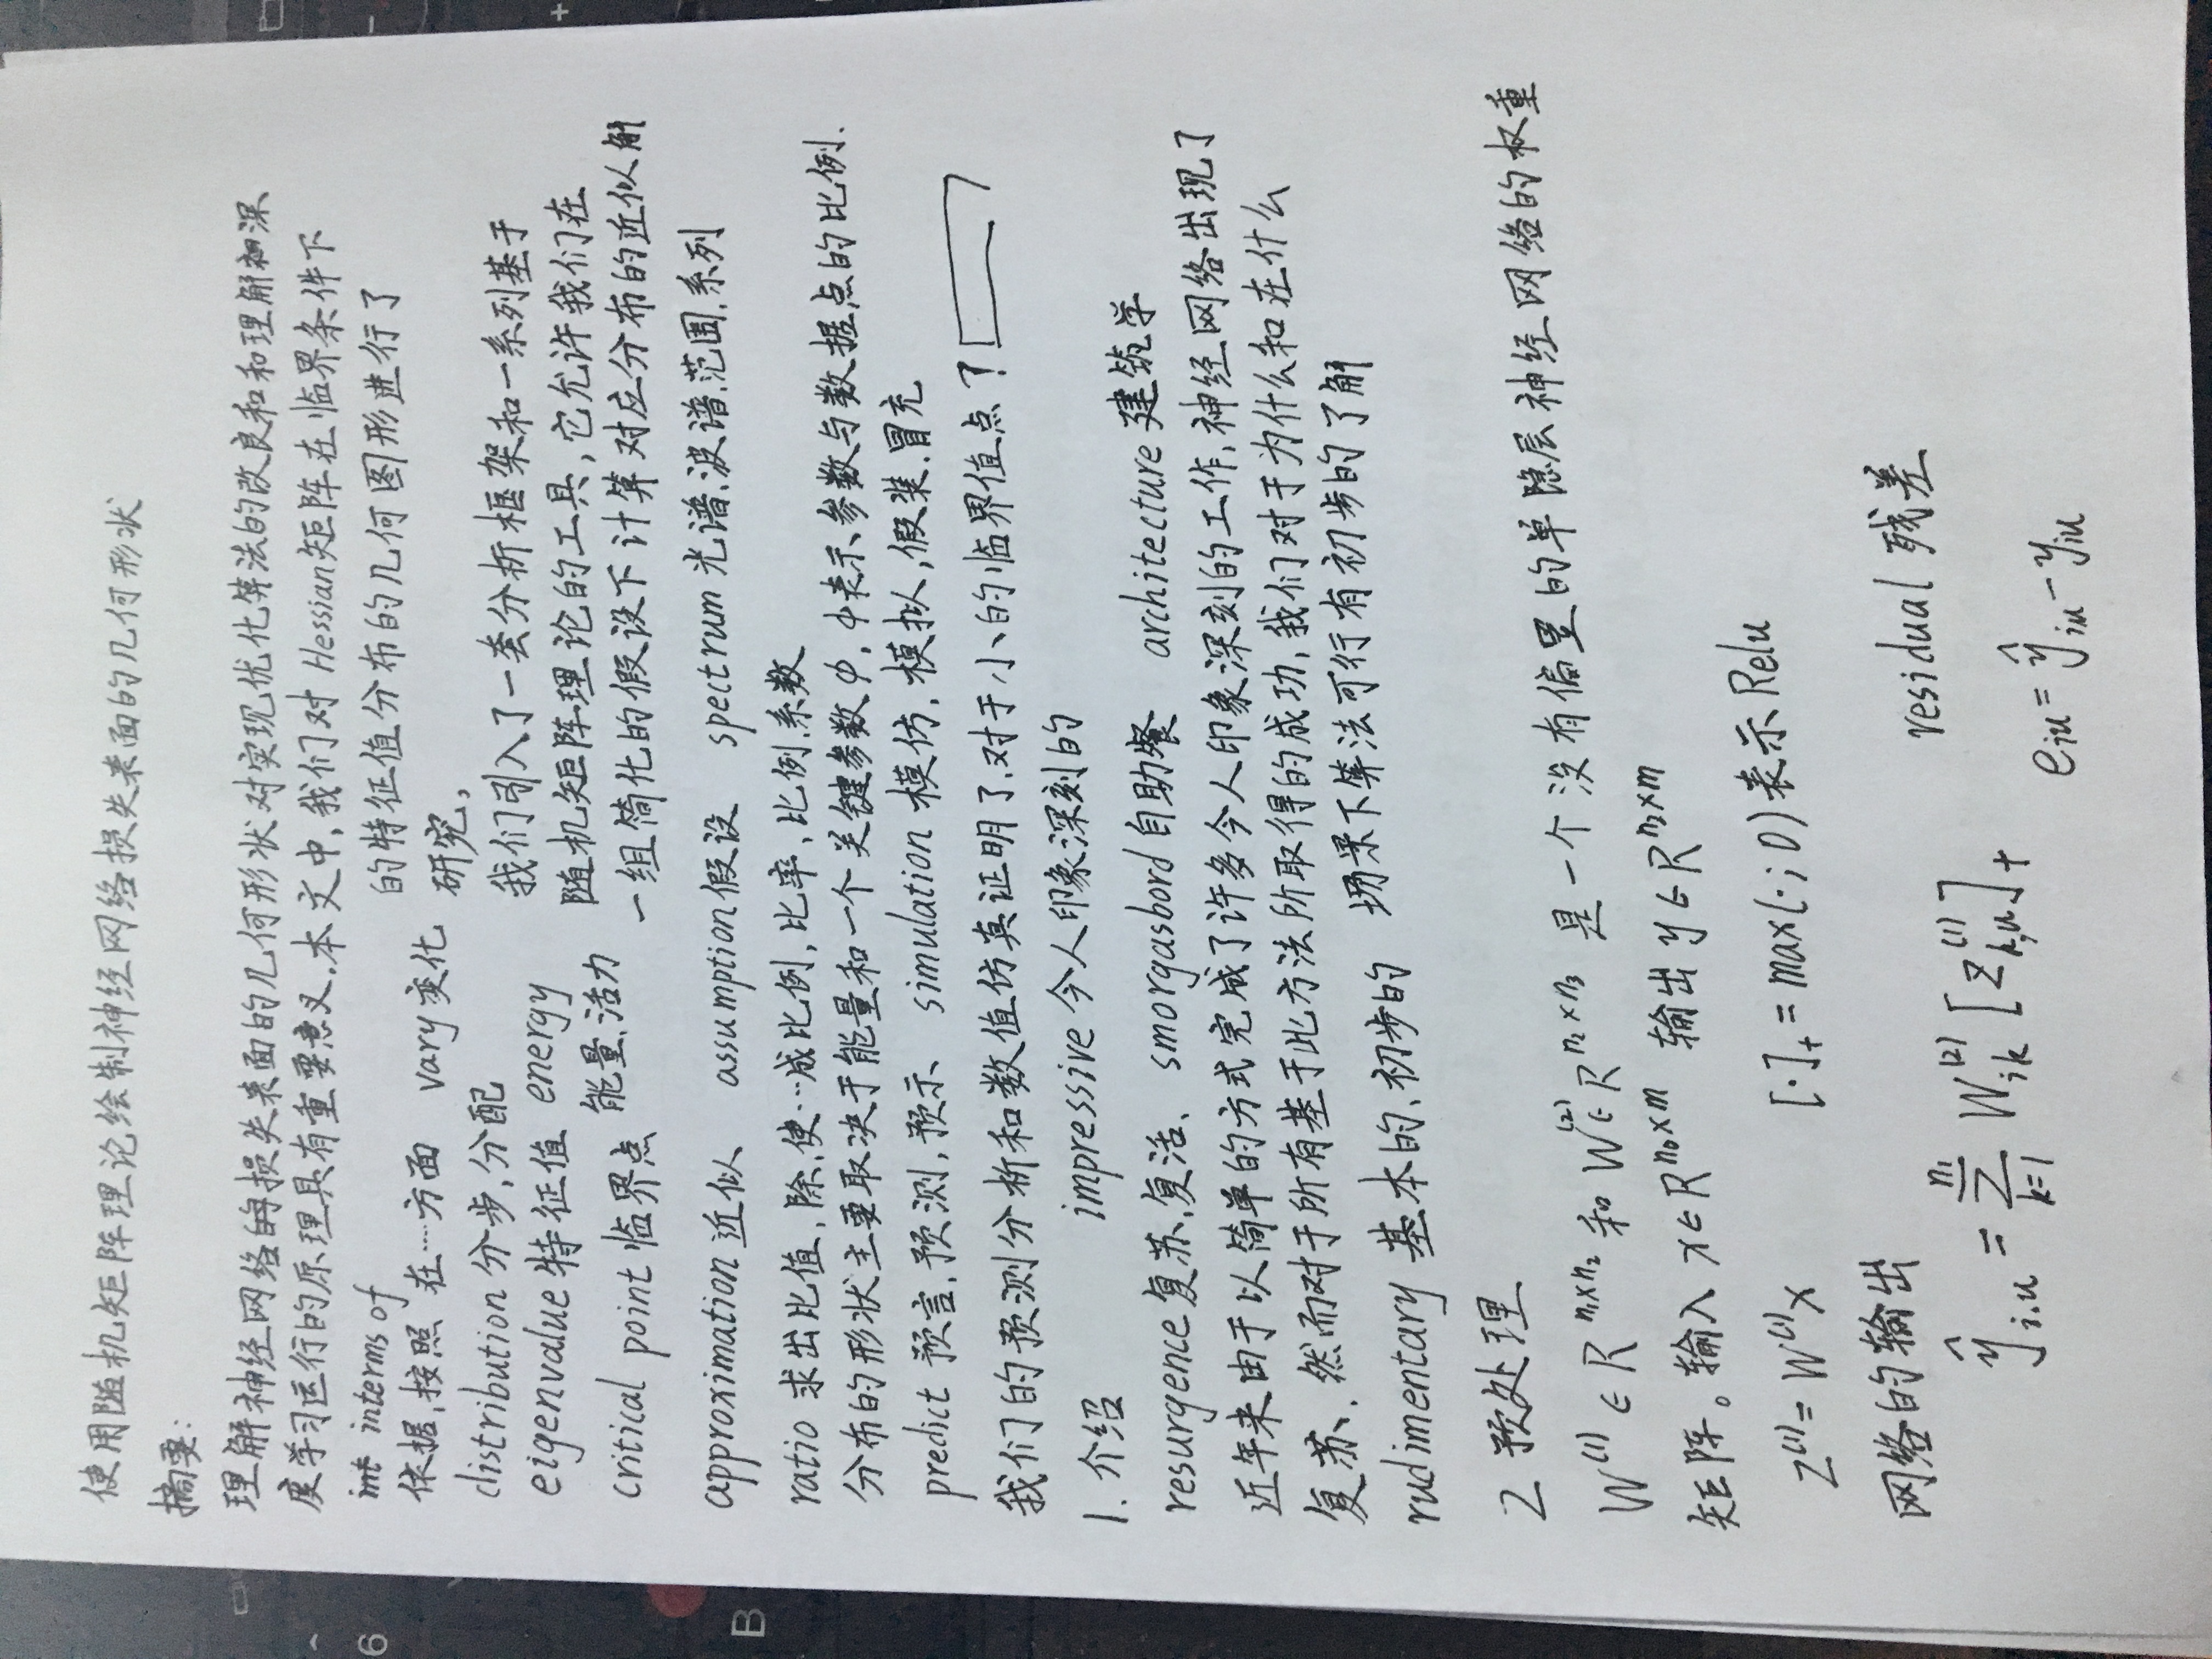 使用随机矩阵理论绘制神经网络损失表面的几何形状
摘要:
理解神经网络的损失表面的几何形状对实现优化算法的改良和和理解深
度学习运行的原理具有重要意义.本文中,我们对 Hessian矩阵在临界条件下
的特征值分布的几何图形进行了
研究,
int interms of
依据,按照 在…方面 vary 变化
distribution 分步,分配
eigenvalue 特征值 energy
能量、活力
critical point 临界点
我们引入了一套分析框架和一系列基于
随机矩阵理论的工具,它允许我们在
一组简化的假设下计算对应分布的近似解
approximation 近似 assumption 假设 spectrum 光谱、波谱、范围、系列
ratio 求出比值,除,使…成比例,比率,比例、系数
分布的形状主要取决于能量和一个关键参数φ, φ表示参数与数据点的比例.
predict 预言、预测,预示 simulation 模仿,模拟,假装、冒充
我们的预测分析和数值仿真证明了,对于小的临界值点?
1. 介绍 impressive 今人印象深刻的
resurgence 复苏、复活、 smorgasbord 自助餐 architecture 建筑学
近年来由于以简单的方式完成了许多今人印象深刻的工作,神经网络出现了
复苏、然而对于所有基于此方法所取得的成功,我们对于为什么和在什么
场景下算法可行有初步的了解
rudimentary 基本的、初步的
2 预处理
W⁽¹⁾ ∈ R^{n₁×n₂} 和 W⁽²⁾ ∈ R^{n₂×n₃} 是一个没有偏置的单隐层神经网络的权重
矩阵。输入 x∈R^{n₀×m} 输出 y∈R^{n₂×m}
Z⁽¹⁾= W⁽¹⁾x [·]₊ = max(·; 0) 表示 Relu
网络的输出
residual 残差
ŷ_{i.u} = Σ_{k=1}^{n₁} W_{ik}^{(2)} [z_{k,u}^{(1)}]₊
e_{iu} = ŷ_{iu} - y_{iu}
6
B